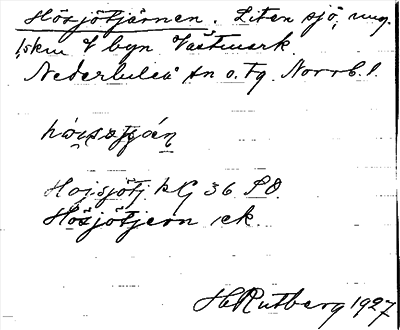 Hösjötjärnen. Liten sjö, ung.
1,5 km V byn Västmark.
Nederluleå sn o. tg. Norrb. l.
Hojsjötj. kG 36 SO.
Hösjötjern ek.
H Rutberg 1927